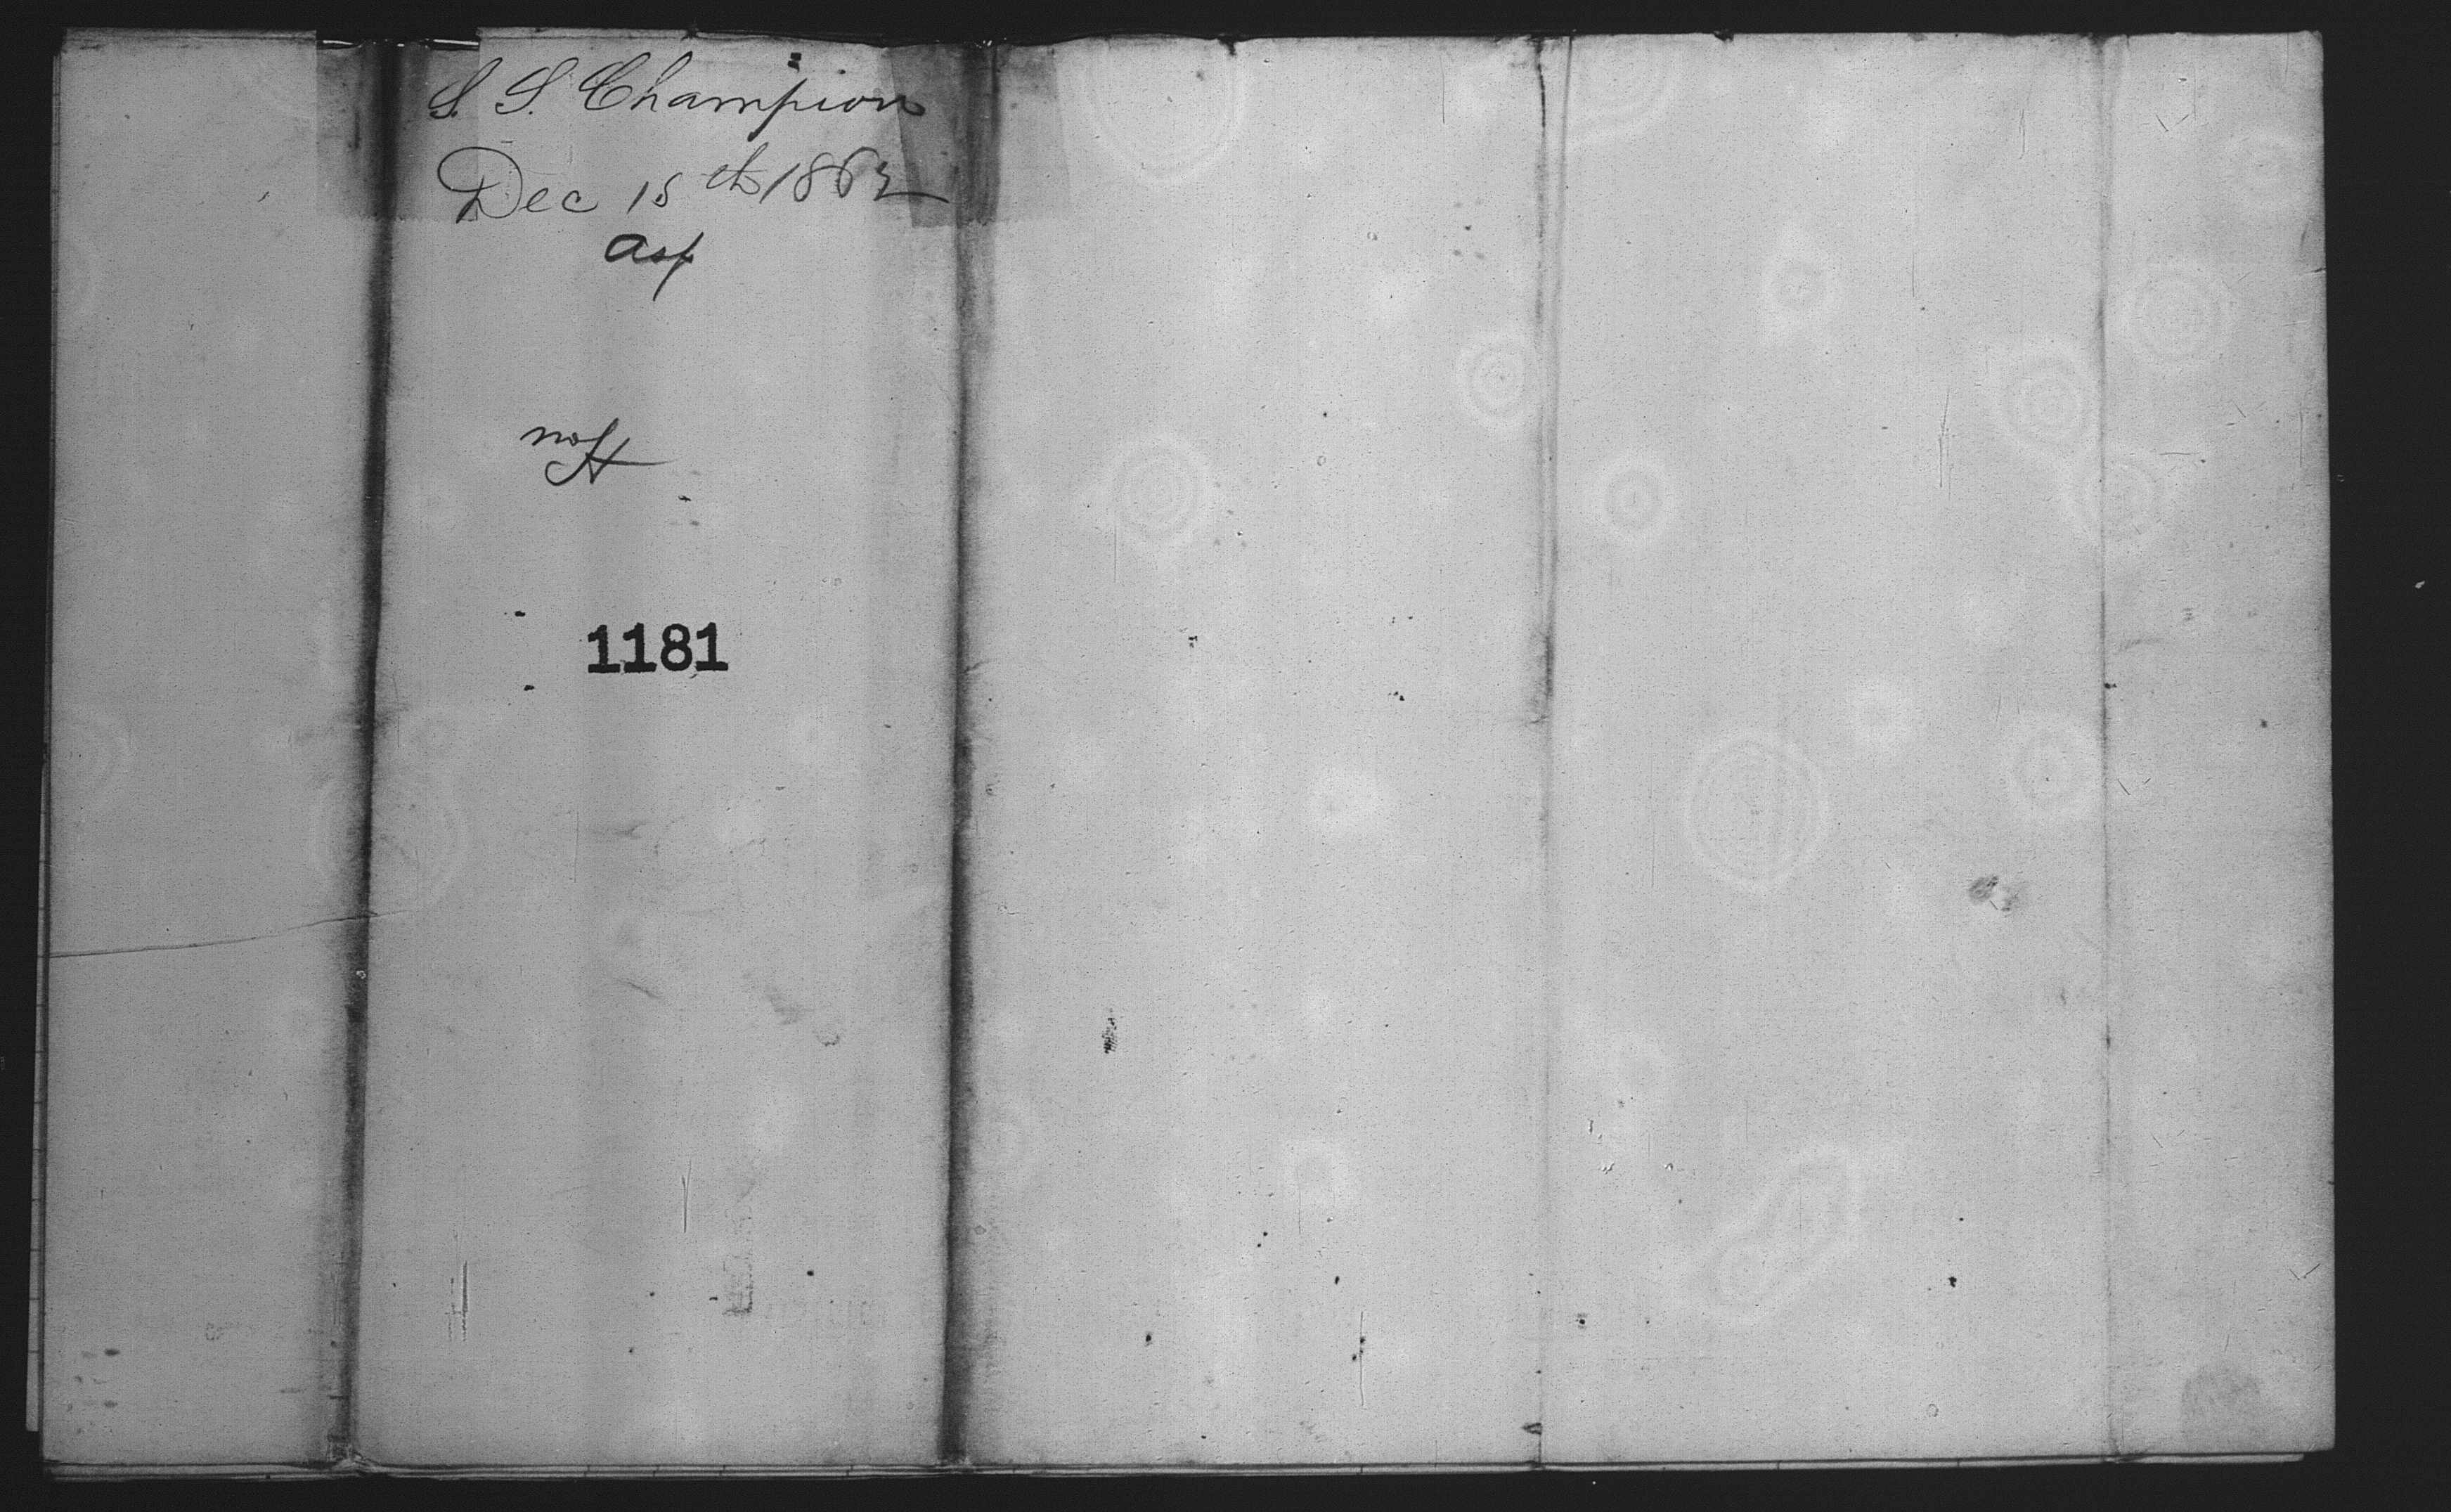 S. S. Champion
Dec 15th 1862
asf
1181